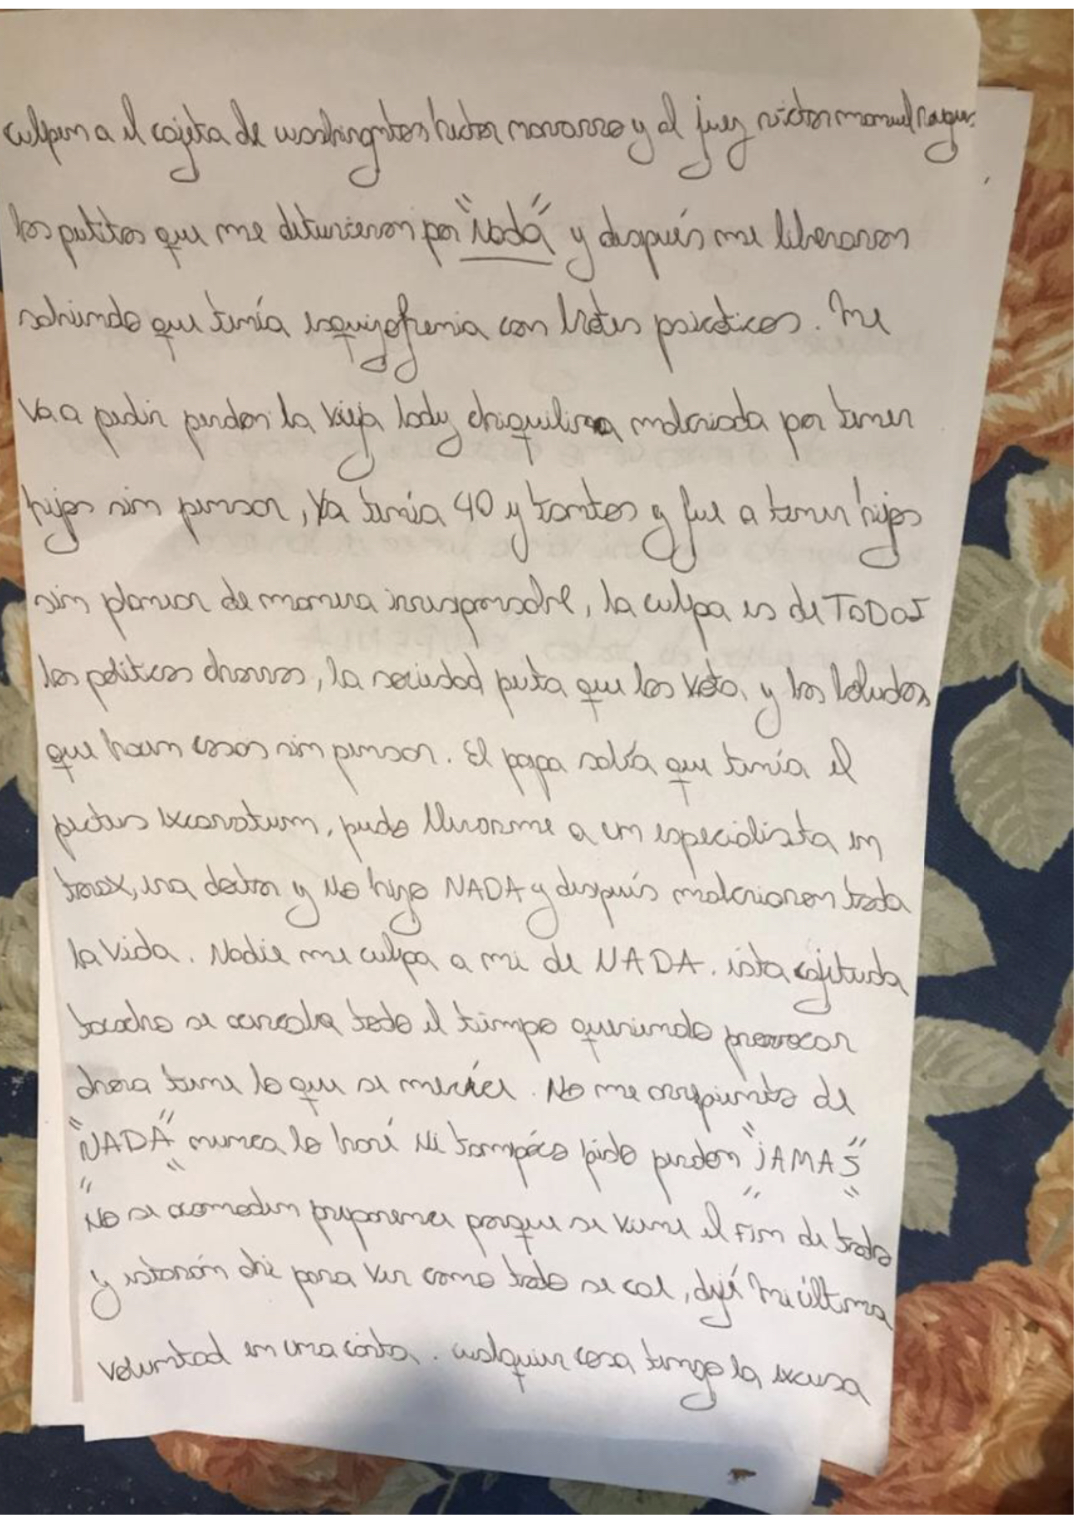 culpen a el cajeta de washington hector navarro y al juez victor manuel
los putitos que me detuvieron por "Nada" y después me liberaron
sabiendo que tenía esquizofrenia con brotes psicoticos. Me
va a pedir perdon la vieja lady chiquilina malcriada por tener
hijos sin pensar, Ya tenía 40 y tantos y fue a tener hijos
sin planear de manera irresponsable, la culpa es de TODOS
los politicos chorros, la sociedad puta que los vota, y los boludos
que hacen cosas sin pensar. El papa sabía que tenía el
pectus excavatum, pudo llevarme a un especialista en
torax, era doctor y No hizo NADA y después malcriaron toda
la vida. Nadie me culpa a mi de NADA. esta cajetuda
todo el tiempo queriendo provocar
ahora tiene lo que se merece. No me arrepiento de
"NADA" nunca lo haré Ni tampoco pido perdon "JAMAS"
"No se acomoden preparence porque se viene el "Fin" de todo
y estarán ahi para ver como todo se cae, dejé mi última
voluntad en una carta. cualquier cosa tengo la excusa